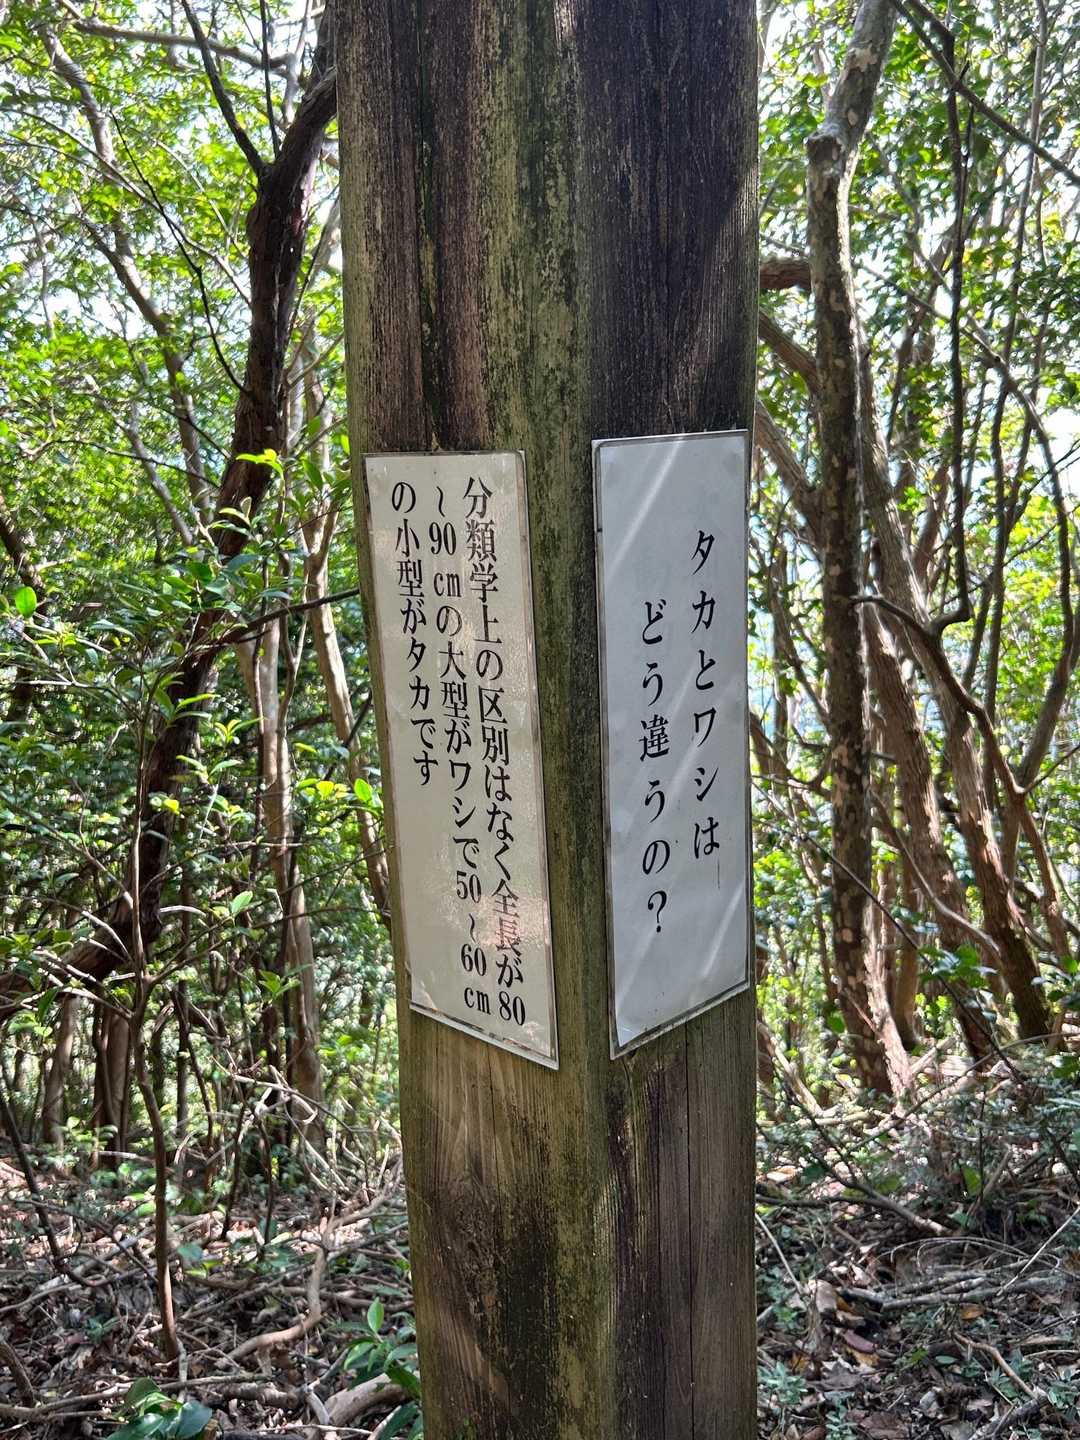 タカとワシは
どう違うの？
分類学上の区別はなく全長が80
～90cmの大型がワシで50～60cm
の小型がタカです